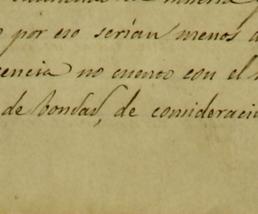 por eso serían menos
encia no cuento con el
de bondad, de consideraci